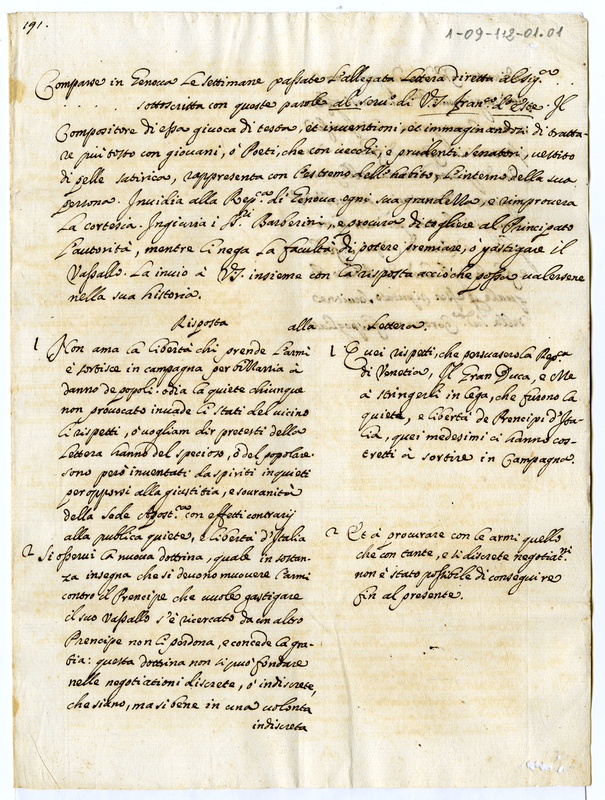 191.
1-09-112-01.01
Comparse in Genova le settimane passate l'allegata lettera diretta al sig.r
. . . . . sottoscritta con queste parole al serv.o di V.S. Fran.co d'Este. Il
Compositore di essa giuoca di testa, et inventioni, et immaginandosi di tratta-
re più tosto con giovani, ò Poeti, che con vecchi, e prudenti senatori, vestito
di pelle satirica, rappresenta con l'estremo dell'habito, l'interno della sua
persona. Invidia alla Rep.ca di Genova ogni sua grandezza, e rimprovera
la cortesia. Ingiuria i SS.ri Barberini, e procura di togliere al Principato
l'autorità, mentre li nega la facultà di potere premiare, ò gastigare il
Vassallo. La invio à V.S. insieme con la risposta acciò che possa valersene
nella sua historia.
Risposta alla Lettera.
1 Non ama la libertà chi prende l'armi
è sortisce in campagna per ottenerla à
danno de popoli. odia la quiete chiunque
non provocato invade li stati del vicino
li rispetti, ò vogliam dir pretesti della
lettera hanno del specioso, ò del popolare
sono però inventati da spiriti inquieti
per opporsi alla giustitia, e souranità
della Sede Apost.ca con effetti contrarij
alla publica quiete, e libertà d'Italia
2 Si osservi la nuova dottrina, quale in sostan-
za insegna che si devono muovere l'armi
contro il Prencipe che vuole gastigare
il suo Vassallo s'è ricercato da un altro
Prencipe non li perdona, e concede la gra-
tia: questa dottrina non si può fondare
nelle negotiationi discrete, ò indiscrete,
che siano, ma si bene in una volontà
indiscreta
1 Quei rispetti, che persuasero la Rep.ca
di Venetia, il Gran Duca, e Me
à stringerli in lega, che furono la
quiete, e libertà de Principi d'Ita-
lia, quei medesimi ci hanno cos-
tretti à sortire in Campagna
2 Et à procurare con le armi quello
che con tante, e si discrete negotiat.ni
non è stato possibile di conseguire
fin al presente.